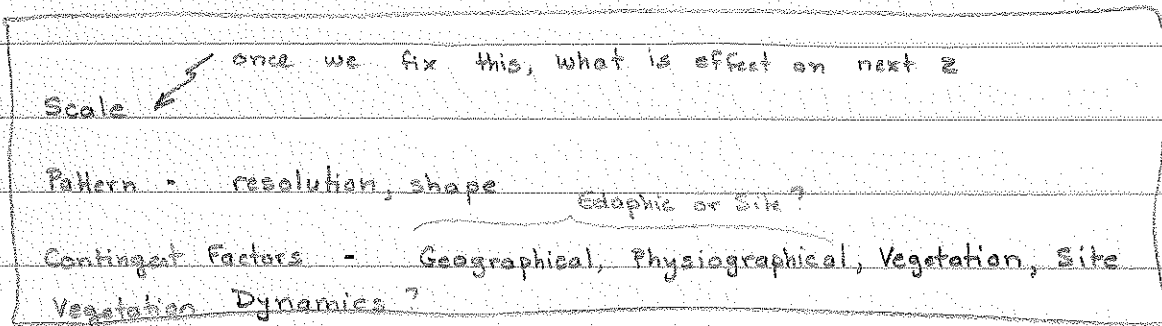 once we fix this, what is effect on next 2
Scale
Pattern - resolution, shape
Edaphic or Site ?
Contingent Factors - Geographical, Physiographical, Vegetation, Site
Vegetation Dynamics ?